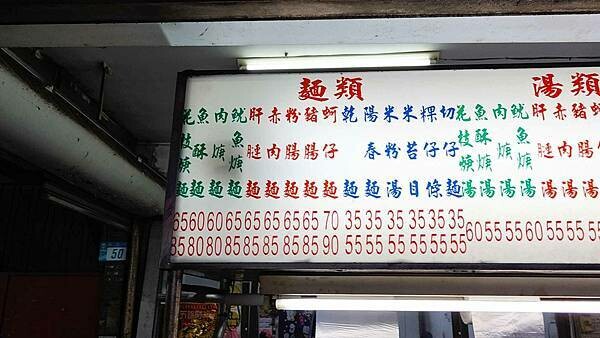 麵類
花枝焿麵 65 85
魚酥麵 60 80
肉焿麵 60 80
魷魚焿麵 65 85
肝腱麵 65 85
赤肉麵 65 85
粉腸麵 65 85
豬腸麵 65 85
蚵仔麵 70 90
乾麵 35 55
陽春麵 35 55
米粉湯 35 55
米苔目 35 55
粿仔條 35 55
切仔麵 35 55
湯類
花枝焿湯 60
魚酥湯 55
肉焿湯 55
魷魚焿湯 60
肝腱湯 55
赤肉湯 55
粉腸湯 55
豬
50